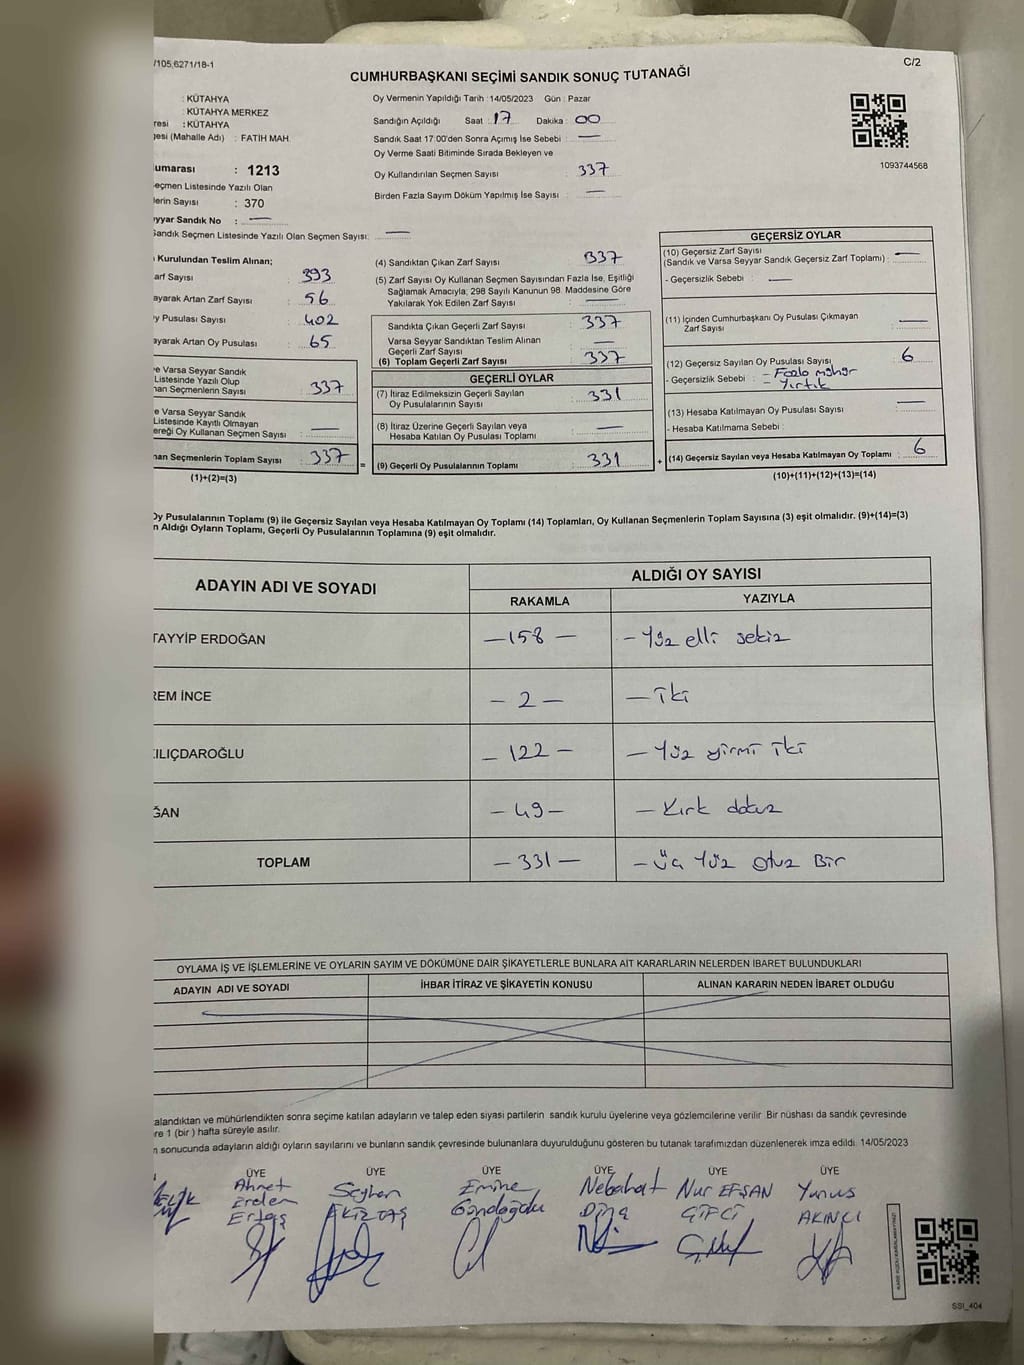 /105,6271/18-1
C/2
CUMHURBAŞKANI SEÇİMİ SANDIK SONUÇ TUTANAĞI
: KÜTAHYA
: KÜTAHYA MERKEZ
resi : KÜTAHYA
gesi (Mahalle Adı) : FATİH MAH.
umarası : 1213
Seçmen Listesinde Yazılı Olan
lerin Sayısı : 370
eyyar Sandık No : —
Sandık Seçmen Listesinde Yazılı Olan Seçmen Sayısı: —
Oy Vermenin Yapıldığı Tarih :14/05/2023 Gün : Pazar
Sandığın Açıldığı Saat : 17 Dakika : 00
Sandık Saat 17:00'den Sonra Açımış İse Sebebi : —
Oy Verme Saati Bitiminde Sırada Bekleyen ve
Oy Kullandırılan Seçmen Sayısı : 337
Birden Fazla Sayım Döküm Yapılmış İse Sayısı : —
1093744568
Kurulundan Teslim Alınan;
arf Sayısı : 393
ayarak Artan Zarf Sayısı : 56
y Pusulası Sayısı : 402
ayarak Artan Oy Pusulası : 65
e Varsa Seyyar Sandık
Listesinde Yazılı Olup
nan Seçmenlerin Sayısı : 337
e Varsa Seyyar Sandık
Listesinde Kayıtlı Olmayan
ereği Oy Kullanan Seçmen Sayısı : —
nan Seçmenlerin Toplam Sayısı : 337
(1)+(2)=(3)
=
(4) Sandıktan Çıkan Zarf Sayısı : 337
(5) Zarf Sayısı Oy Kullanan Seçmen Sayısından Fazla İse, Eşitliği
Sağlamak Amacıyla; 298 Sayılı Kanunun 98. Maddesine Göre
Yakılarak Yok Edilen Zarf Sayısı : —
Sandıkta Çıkan Geçerli Zarf Sayısı : 337
Varsa Seyyar Sandıktan Teslim Alınan
Geçerli Zarf Sayısı : —
(6) Toplam Geçerli Zarf Sayısı : 337
GEÇERLİ OYLAR
(7) İtiraz Edilmeksizin Geçerli Sayılan
Oy Pusulalarının Sayısı : 331
(8) İtiraz Üzerine Geçerli Sayılan veya
Hesaba Katılan Oy Pusulası Toplamı : —
(9) Geçerli Oy Pusulalarının Toplamı : 331
+
GEÇERSİZ OYLAR
(10) Geçersiz Zarf Sayısı
(Sandık ve Varsa Seyyar Sandık Geçersiz Zarf Toplamı) : —
- Geçersizlik Sebebi : —
(11) İçinden Cumhurbaşkanı Oy Pusulası Çıkmayan
Zarf Sayısı : —
(12) Geçersiz Sayılan Oy Pusulası Sayısı : 6
- Geçersizlik Sebebi : – Fazla mühür
– Yırtık
(13) Hesaba Katılmayan Oy Pusulası Sayısı : —
- Hesaba Katılmama Sebebi :
(14) Geçersiz Sayılan veya Hesaba Katılmayan Oy Toplamı : 6
(10)+(11)+(12)+(13)=(14)
Oy Pusulalarının Toplamı (9) ile Geçersiz Sayılan veya Hesaba Katılmayan Oy Toplamı (14) Toplamları, Oy Kullanan Seçmenlerin Toplam Sayısına (3) eşit olmalıdır. (9)+(14)=(3)
n Aldığı Oyların Toplamı, Geçerli Oy Pusulalarının Toplamına (9) eşit olmalıdır.
ADAYIN ADI VE SOYADI
ALDIĞI OY SAYISI
RAKAMLA
YAZIYLA
TAYYİP ERDOĞAN —158— – Yüz elli sekiz
REM İNCE – 2 — — iki
ILIÇDAROĞLU – 122 – — Yüz yirmi iki
ĞAN – 49 – — Kırk dokuz
TOPLAM – 331 — – üç Yüz otuz Bir
OYLAMA İŞ VE İŞLEMLERİNE VE OYLARIN SAYIM VE DÖKÜMÜNE DAİR ŞİKAYETLERLE BUNLARA AİT KARARLARIN NELERDEN İBARET BULUNDUKLARI
ADAYIN ADI VE SOYADI
İHBAR İTİRAZ VE ŞİKAYETİN KONUSU
ALINAN KARARIN NEDEN İBARET OLDUĞU
alandıktan ve mühürlendikten sonra seçime katılan adayların ve talep eden siyasi partilerin sandık kurulu üyelerine veya gözlemcilerine verilir. Bir nüshası da sandık çevresinde
re 1 (bir ) hafta süreyle asılır.
n sonucunda adayların aldığı oyların sayılarını ve bunların sandık çevresinde bulunanlara duyurulduğunu gösteren bu tutanak tarafımızdan düzenlenerek imza edildi. 14/05/2023
ÜYE ÜYE ÜYE ÜYE ÜYE ÜYE
Ahmet Seyhan Emine Nebahat Nur EFŞAN Yunus
Erdem EKİZTAŞ Gündoğdu ÇİFCİ AKINCI
Ertaş
SSI_404